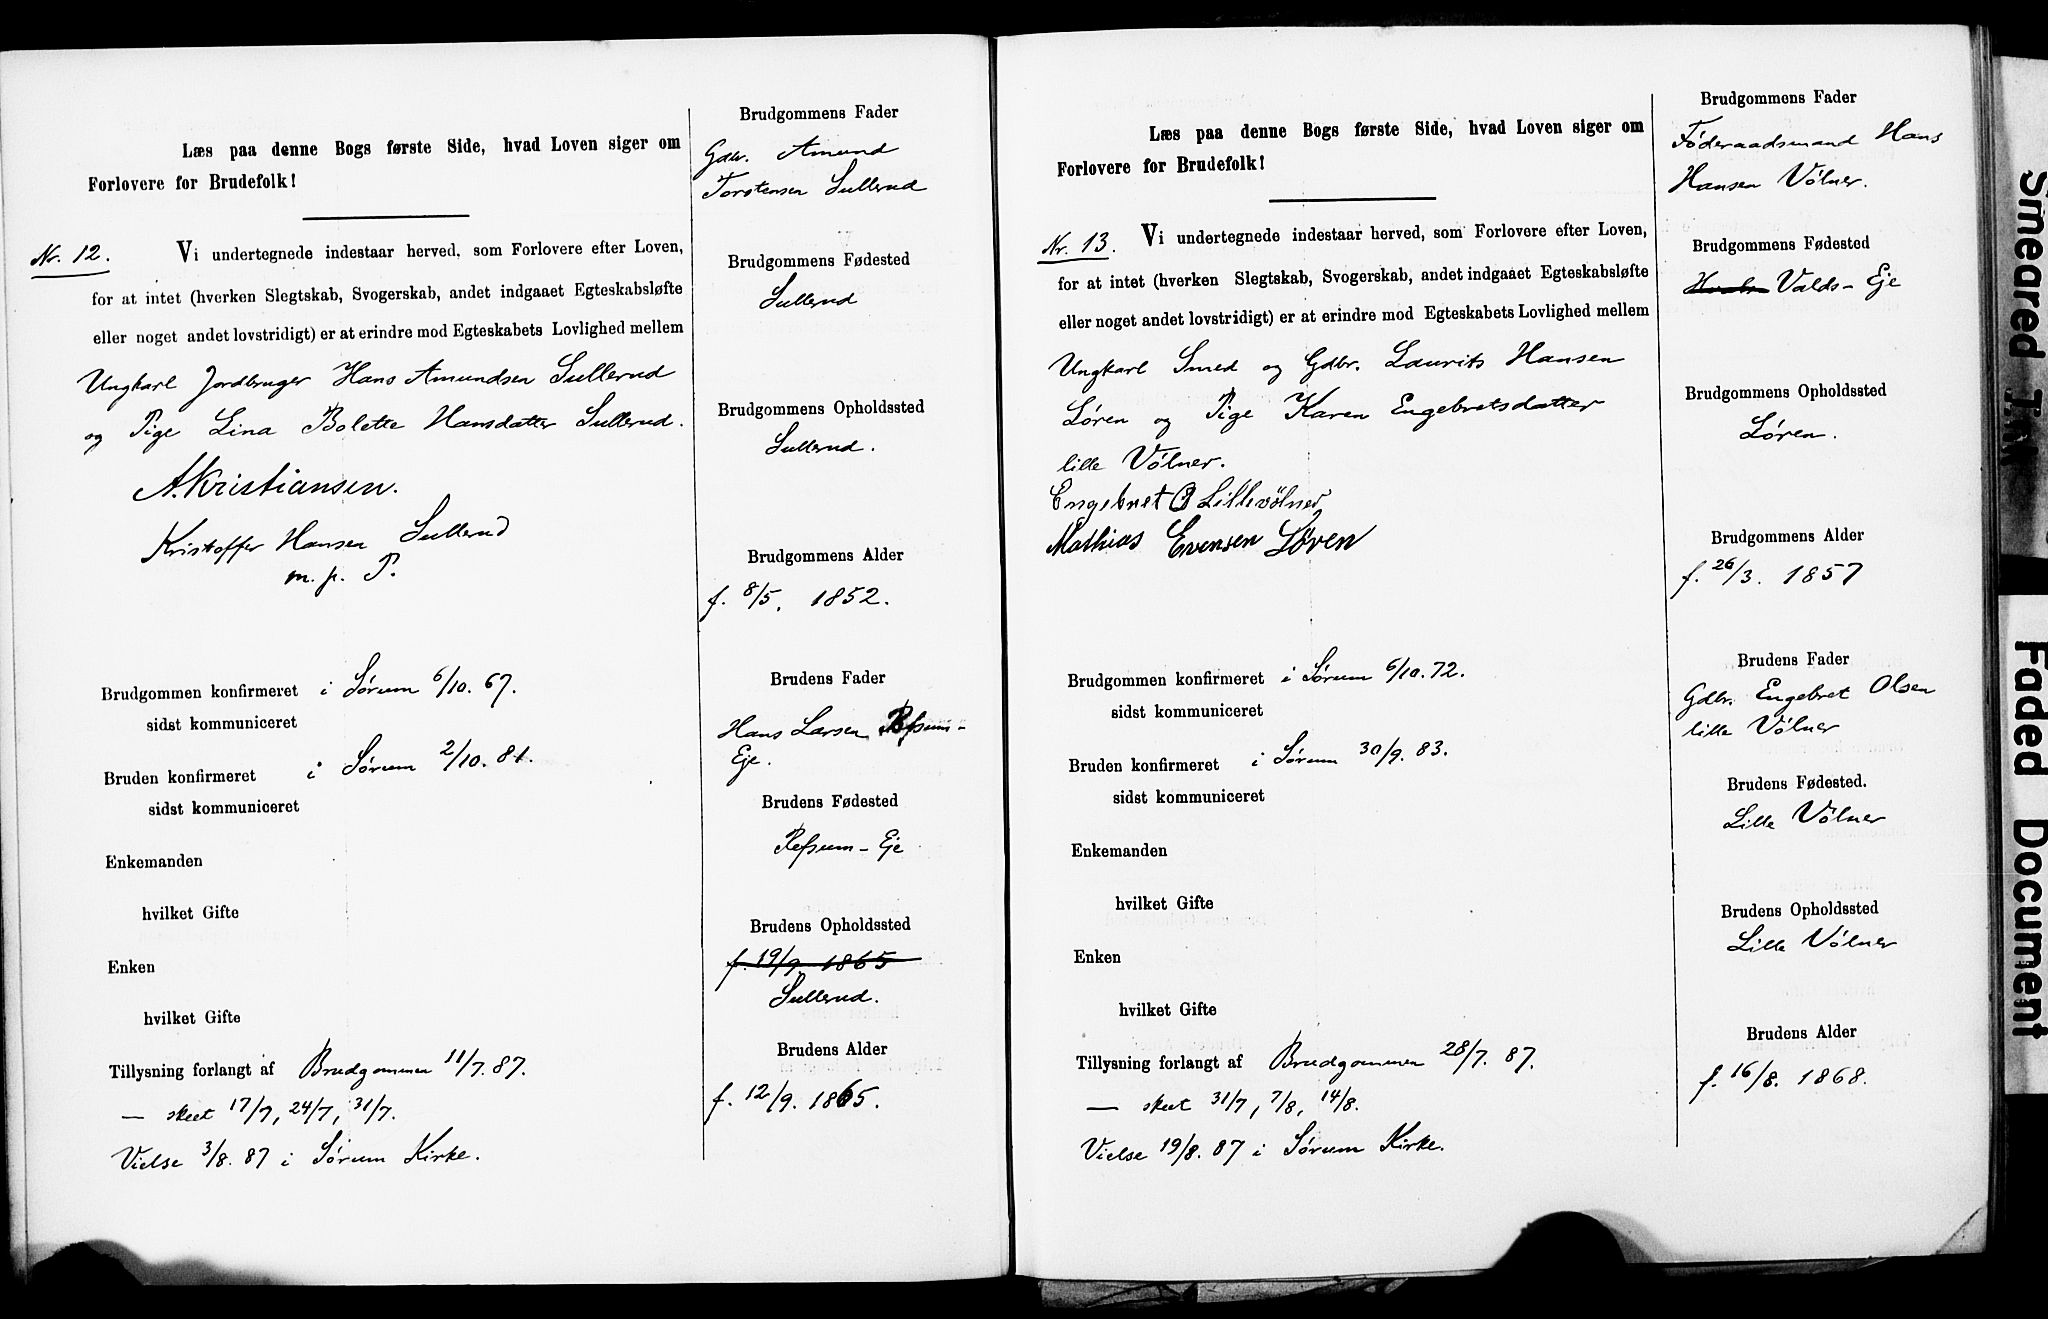 Læs paa denne Bogs første Side, hvad Loven siger om
Forlovere for Brudefolk!
Nr. 12. Vi undertegnede indestaar herved, som Forlovere efter Loven,
for at intet (hverken Slegtskab, Svogerskab, andet indgaaet Egteskabsløfte
eller noget andet lovstridigt) er at erindre mod Egteskabets Lovlighed mellem
Ungkarl Jordbruger Hans Amundsen Sullerud
og Pige Lina Bolette Hansdatter Sullerud.
A. Kristiansen.
Kristoffer Hansen Sullerud
m. p. P.
Brudgommen konfirmeret i Sørum 6/10. 67.
sidst kommuniceret
Bruden konfirmeret i Sørum 2/10. 81.
sidst kommuniceret
Enkemanden
hvilket Gifte
Enken
hvilket Gifte
Tillysning forlangt af Brudgommen 11/7. 87.
— skeet 17/7, 24/7, 31/7.
Vielse 3/8. 87 i Sørum Kirke.
Brudgommens Fader
Gdbr. Amund
Torstensen Sullerud
Brudgommens Fødested
Sullerud
Brudgommens Opholdssted
Sullerud.
Brudgommens Alder
f. 8/5. 1852.
Brudens Fader
Hans Larsen Refsum-
Eje.
Brudens Fødested
Refsum-Eje
Brudens Opholdssted
f. 19/9 1865
Sullerud.
Brudens Alder
f. 12/9. 1865.
Læs paa denne Bogs første Side, hvad Loven siger om
Forlovere for Brudefolk!
Nr. 13. Vi undertegnede indestaar herved, som Forlovere efter Loven,
for at intet (hverken Slegtskab, Svogerskab, andet indgaaet Egteskabsløfte
eller noget andet lovstridigt) er at erindre mod Egteskabets Lovlighed mellem
Ungkarl Smed og Gdbr. Laurits Hansen
Løren og Pige Karen Engebretsdatter
lille Vølner.
Engebret O Lillevölner
Mathias Evensen Løren
Brudgommen konfirmeret i Sørum 6/10. 72.
sidst kommuniceret
Bruden konfirmeret i Sørum 30/9. 83.
sidst kommuniceret
Enkemanden
hvilket Gifte
Enken
hvilket Gifte
Tillysning forlangt af Brudgommen 28/7. 87.
— skeet 31/7, 7/8, 14/8.
Vielse 19/8. 87 i Sørum Kirke.
Brudgommens Fader
Føderaadsmand Hans
Hansen Vølner.
Brudgommens Fødested
Valds-Eje
Brudgommens Opholdssted
Løren.
Brudgommens Alder
f. 26/3. 1857
Brudens Fader
Gdbr. Engebret Olsen
lille Vølner
Brudens Fødested.
Lille Vølner
Brudens Opholdssted
Lille Vølner
Brudens Alder
f. 16/8. 1868.
Smeared
Faded Document